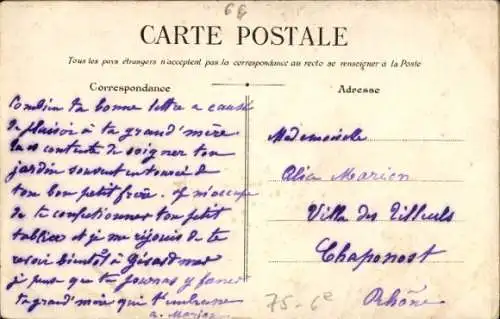 6e
CARTE POSTALE
Tous les pays étrangers n'acceptent pas la correspondance au recto se renseigner à la Poste
Correspondance
Adresse
Combien ta bonne lettre a causé
de plaisir à ta grand'mère
tu es contente de soigner ton
jardin souvent entouré de
ton bon petit frère. je m'occupe
de te confectionner ton petit
tablier et je me réjouis de te
revoir bientôt à
je pense que tu
ta grand'mère qui t'embrasse
a. Marion
Mademoiselle
Alice Marion
Villa des Tilleuls
Chaponost
Rhône
75-6e